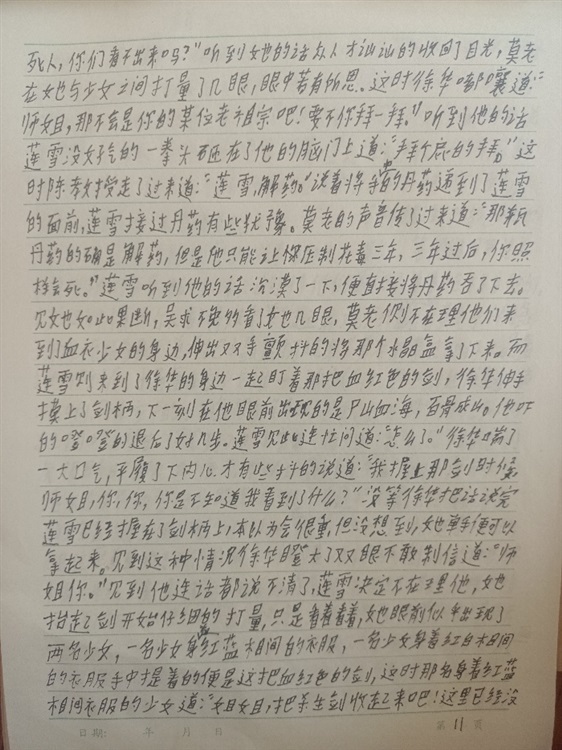 死人，你们看不出来吗？"听到她的话众人才讪讪的收回了目光，莫老
在她与少女之间打量了几眼，眼中若有所思。这时徐华嘟囔道："
师姐，那不会是你的某位老祖宗吧！要不你拜一拜。"听到他的话
莲雪没好气的一拳头砸在了他的脑门上道："拜个屁的拜。"这
时陈教授走了过来道："莲雪，解药。"说着将手中的丹药递到了莲雪
的面前，莲雪接过丹药有些犹豫。莫老的声音传了过来道："那瓶
丹药的确是解药，但是他只能让你压制花毒三年，三年过后，你照
样会死。"莲雪听到他的话沉漠了一下，便直接将丹药吞了下去。
见她如此果断，吴求不免的看了她几眼，莫老则不在理他们来
到了血衣少女的身边，伸出双手颤抖的将那个水晶盒拿了下来。而
莲雪则来到了徐华的身边一起盯着那把血红色的剑，徐华伸手
摸上了剑柄，下一刻在他眼前出现的是尸山血海，百骨成山。他吓
的噔噔的退后了好几步。莲雪见此连忙问道："怎么了。"徐华喘了
一大口气，平顺了下内心才有些抖的说道："我握上那剑时候，
师姐，你，你，你是不知道我看到了什么？"没等徐华把话说完
莲雪已经握在了剑柄上，本以为会很重，但没想到，她单手便可以
拿起来。见到这种情况徐华瞪大了双眼不敢制信道："师
姐你。"见到他连话都说不清了，莲雪决定不在理他，她
抬起了剑开始仔细的打量，只是看着看着，她眼前似乎出现了
两名少女，一名少女身红蓝相间的衣服，一名少女身着红白相间
的衣服手中提着的便是这把血红色的剑，这时那名身着红蓝
相间衣服的少女道："姐姐，把杀生剑收起来吧！这里已经没
日期: 年 月 日 第 11 页